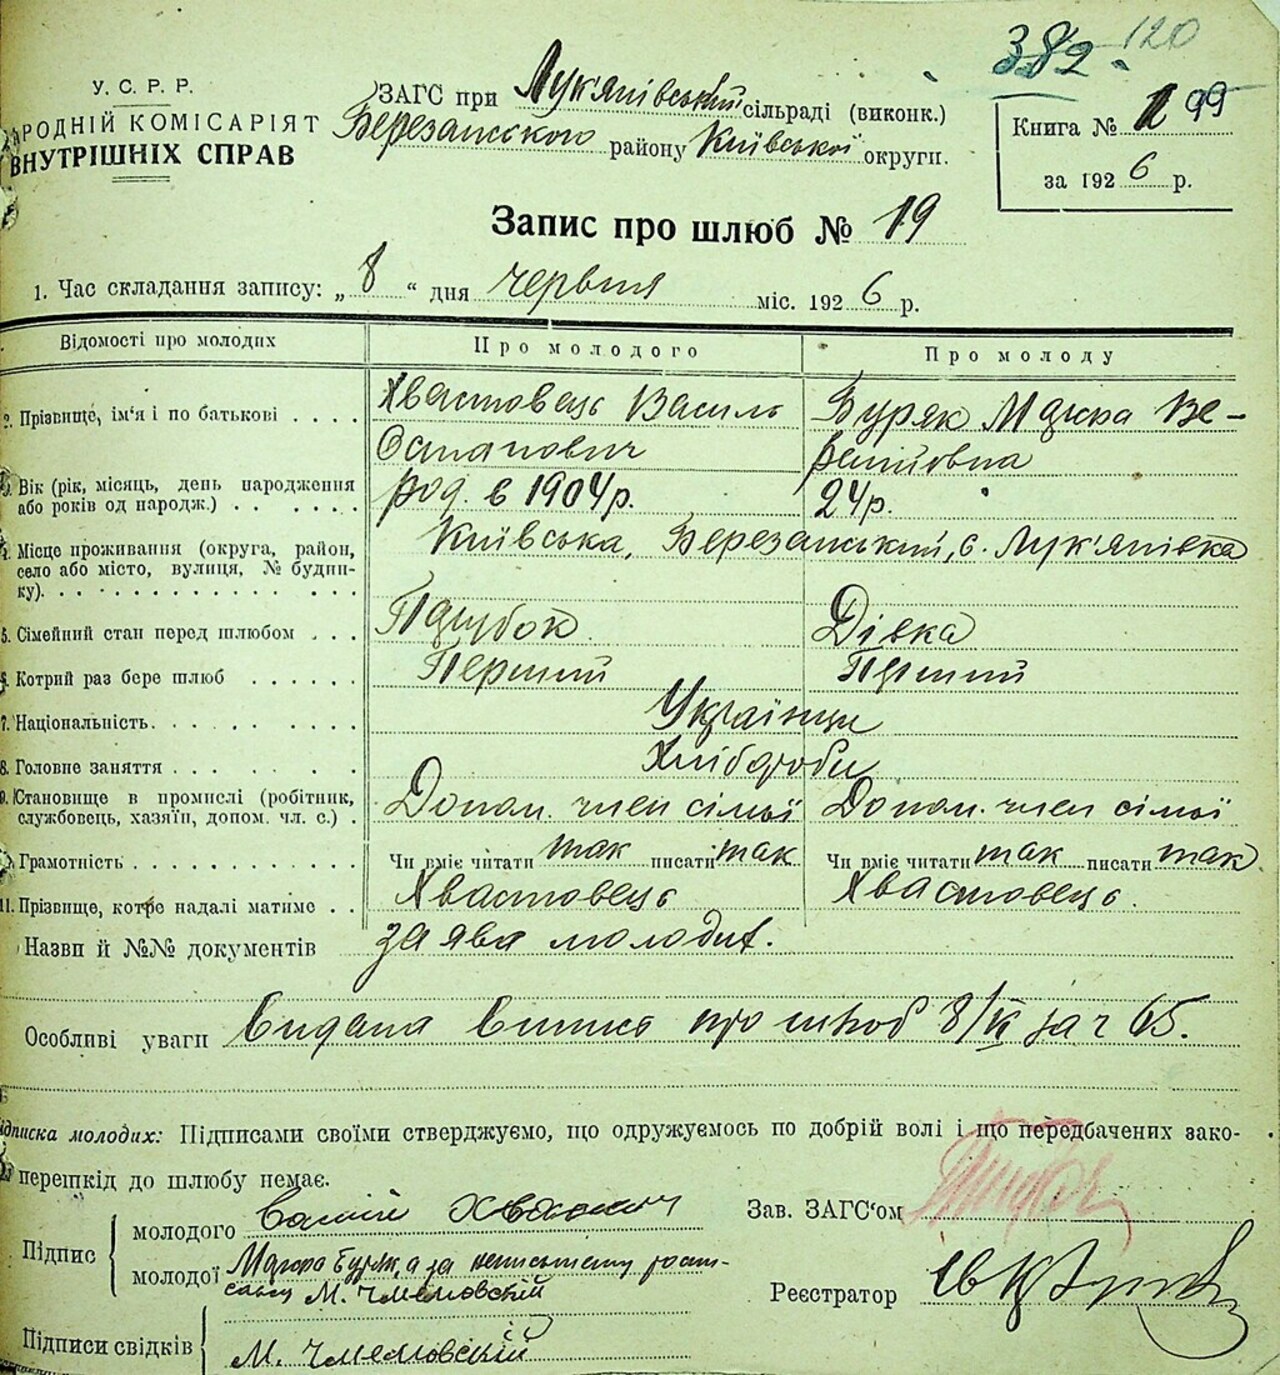 382 120
У. С. Р. Р.
НАРОДНІЙ КОМІСАРІЯТ
ВНУТРІШНІХ СПРАВ
ЗАГС при Лук'янівській сільраді (виконк.)
Березанського району Київської округи.
Книга № 199
за 1926 р.
Запис про шлюб № 19
1. Час складання запису: „8“ дня червня міс. 1926 р.
Відомості про молодих Про молодого Про молоду
2. Прізвище, ім'я і по батькові . . . . Хвастовець Василь Остапович Буряк Мотря Ве-
3. Вік (рік, місяць, день народження або років од народж.) . . . . . . . род. в 1904 р. 24 р.
4. Місце проживання (округа, район, село або місто, вулиця, № будин-ку). . . . Київська, Березанський, с. Лук'янівка
5. Сімейний стан перед шлюбом . . . Парубок Дівка
6. Котрий раз бере шлюб . . . . . . Перший Перший
7. Національність. . . . . . . . . Українці
8. Головне заняття . . . . . . . . Хлібороби
9. Становище в промислі (робітник, службовець, хазяїн, допом. чл. с.) . Допом. член сімьї Допом. член сімьї
Грамотність . . . . . . . . . . Чи вміє читати так писати так Чи вміє читати так писати так
11. Прізвище, котре надалі матиме . . Хвастовець Хвастовець.
Назви й №№ документів заява молодих.
Особливі уваги Видана виписъ про шлюб 8/VI за ч 65.
Підписка молодих: Підписами своїми стверджуємо, що одружуємось по добрій волі і що передбачених зако-
перешкід до шлюбу немає.
Підпис
молодого
молодої Мотря Буряк, а за неписьменну розпи-
М.
Зав. ЗАГС‘ом
Реєстратор
Підписи свідків
М.